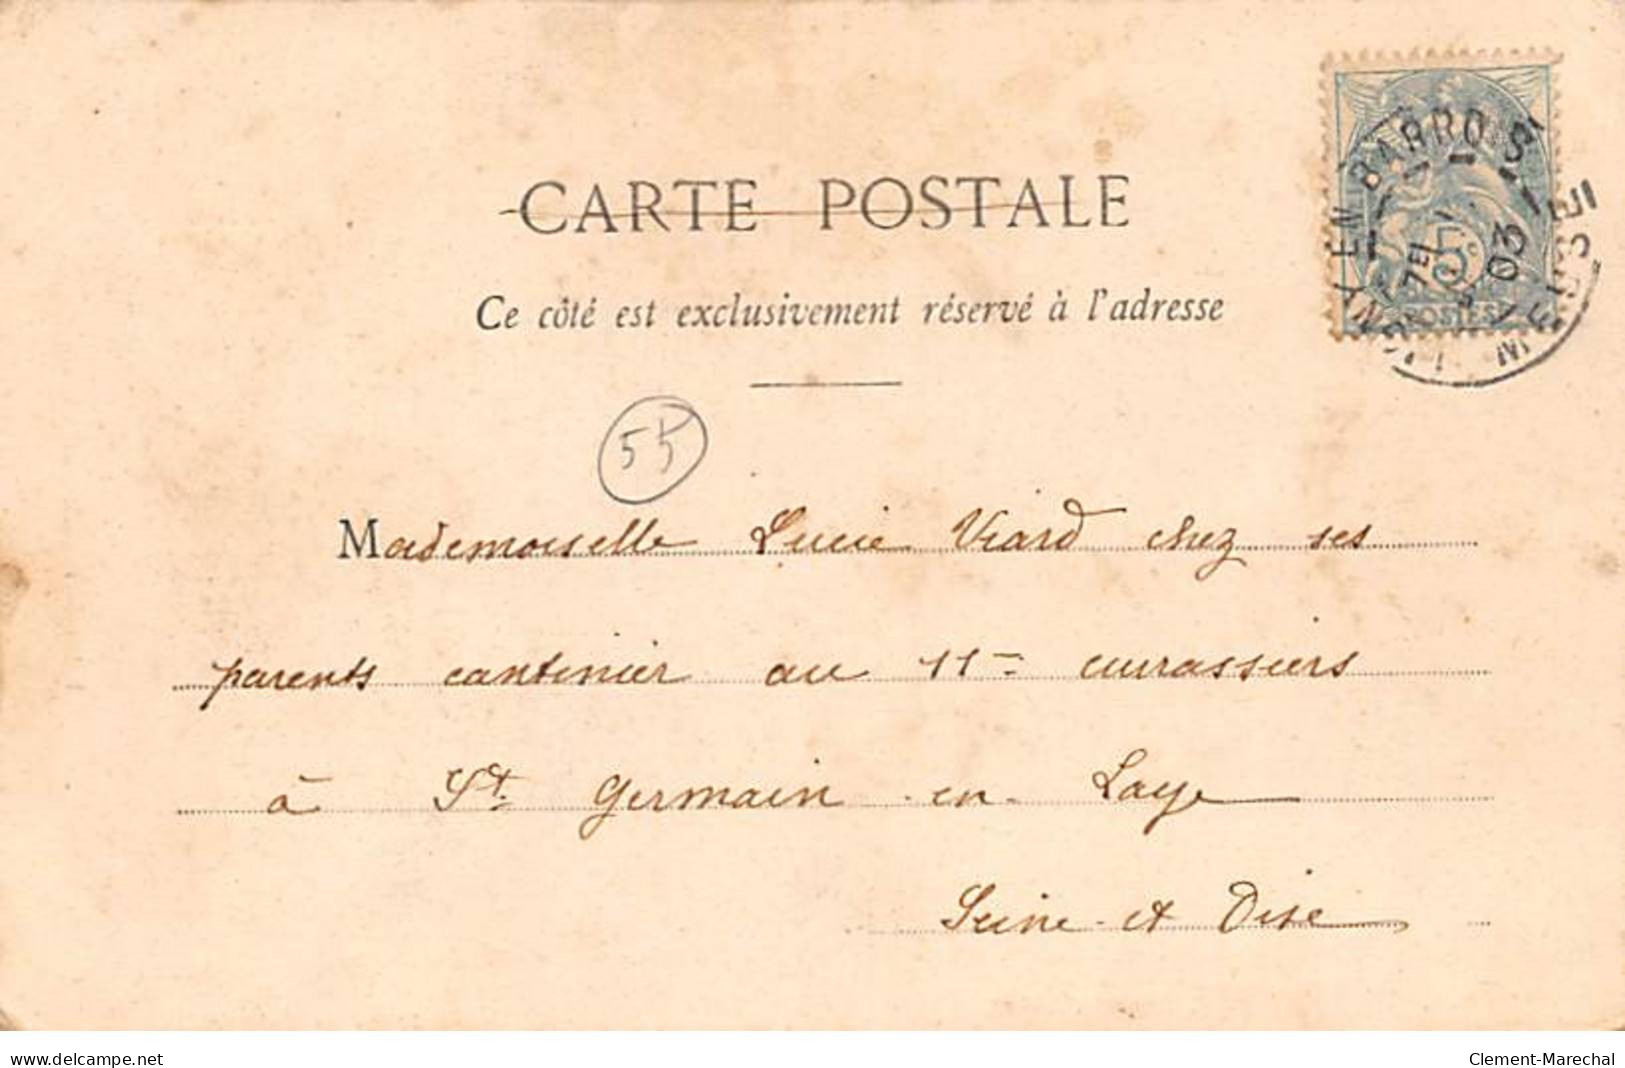 CARTE POSTALE
Ce côté est exclusivement réservé à l'adresse
BARROIS
MEUSE
7E
03
5c
POSTES
55
Mademoiselle Lucie Viard chez ses
parents cantinier au 11e cuirassiers
à St Germain-en-Laye
Seine-et Oise
www.delcampe.net
Clement-Marechal